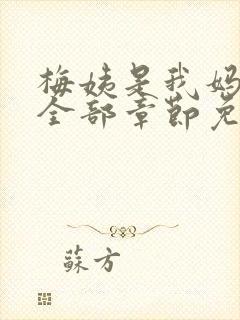 梅姨是我妈
全部章节免
蘇方